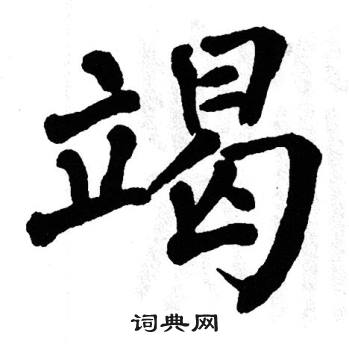 竭
词典网